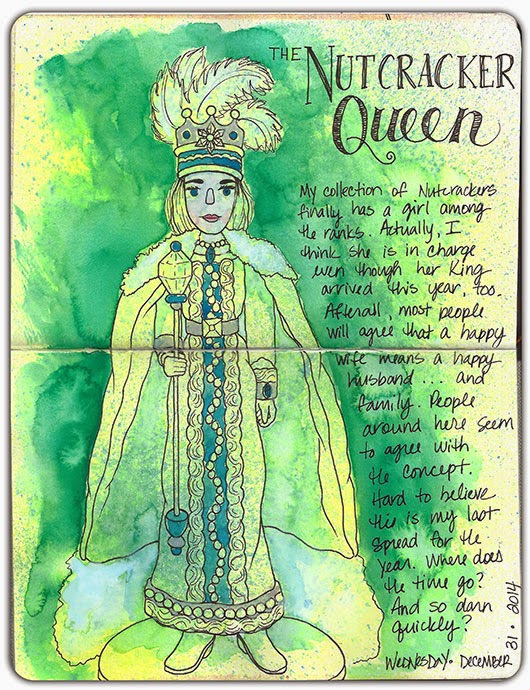 THE NUTCRACKER
Queen
My collection of Nutcrackers
finally has a girl among
the ranks. Actually, I
think she is in charge
even though her King
arrived this year, too.
Afterall, most people
will agree that a happy
wife means a happy
husband ... and
family. People
around here seem
to agree with
the concept.
Hard to believe
this is my last
spread for the
year. Where does
the time go?
And so darn
quickly?
WEDNESDAY. DECEMBER
31. 2014